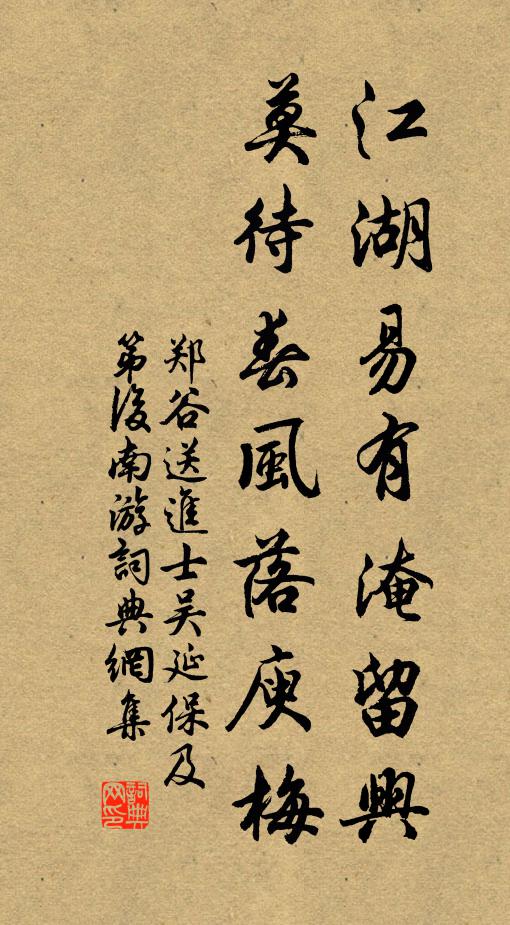 江湖易有淹留興
莫待春風落庾梅
郑谷送進士吴延保及
第後南游詞典網集
詞典网印